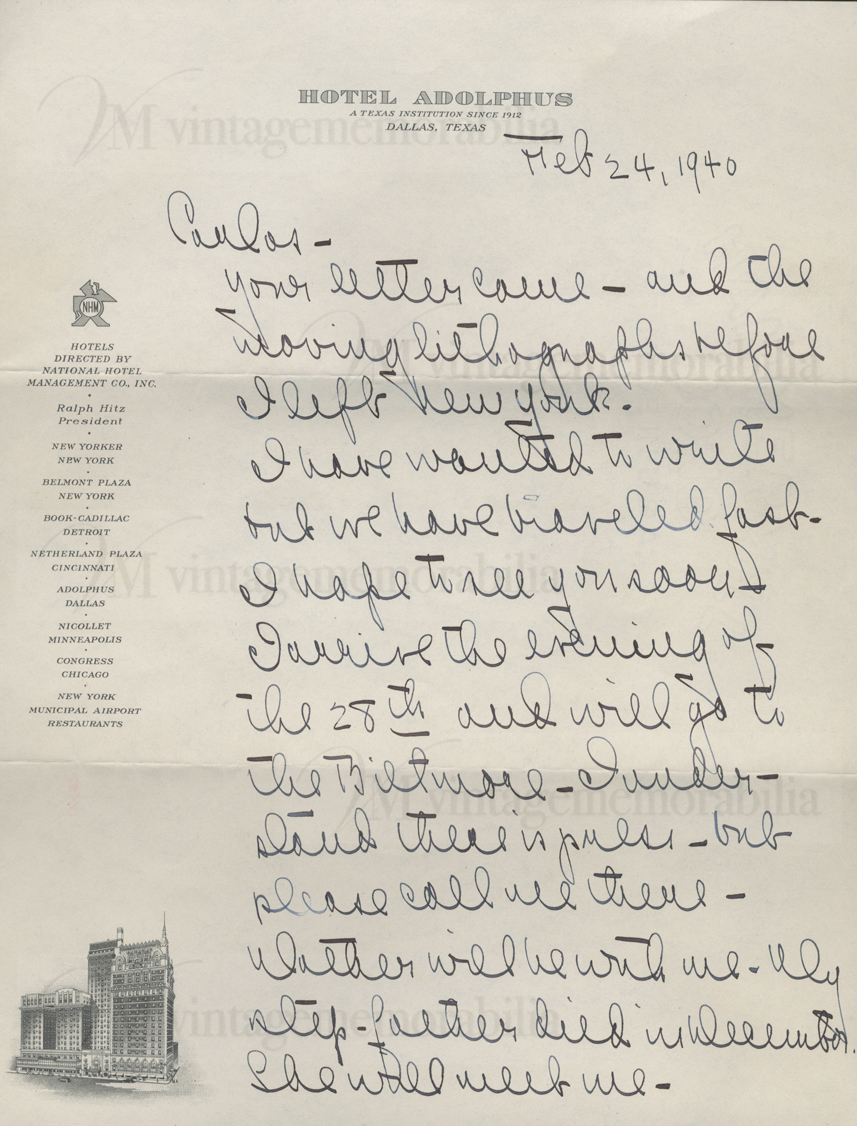 HOTEL ADOLPHUS
A TEXAS INSTITUTION SINCE 1912
DALLAS, TEXAS
Feb 24, 1940
Carlos –
your letter came – and the
moving lithographs before
I left New York.
I have wanted to write
but we have traveled fast–
I hope to see you soon –
I arrive the evening of
the 28th and will go to
the Biltmore – I under–
stand there is – but
please call me there –
Mother will be with me. My
step-father died in December.
She will meet me –
NHM
HOTELS
DIRECTED BY
NATIONAL HOTEL
MANAGEMENT CO., INC.
Ralph Hitz
President
NEW YORKER
NEW YORK
BELMONT PLAZA
NEW YORK
BOOK-CADILLAC
DETROIT
NETHERLAND PLAZA
CINCINNATI
ADOLPHUS
DALLAS
NICOLLET
MINNEAPOLIS
CONGRESS
CHICAGO
NEW YORK
MUNICIPAL AIRPORT
RESTAURANTS
VM vintagememorabilia
VM vintagememorabilia
VM vintagememorabilia
VM vintagememorabilia
vintagememorabilia